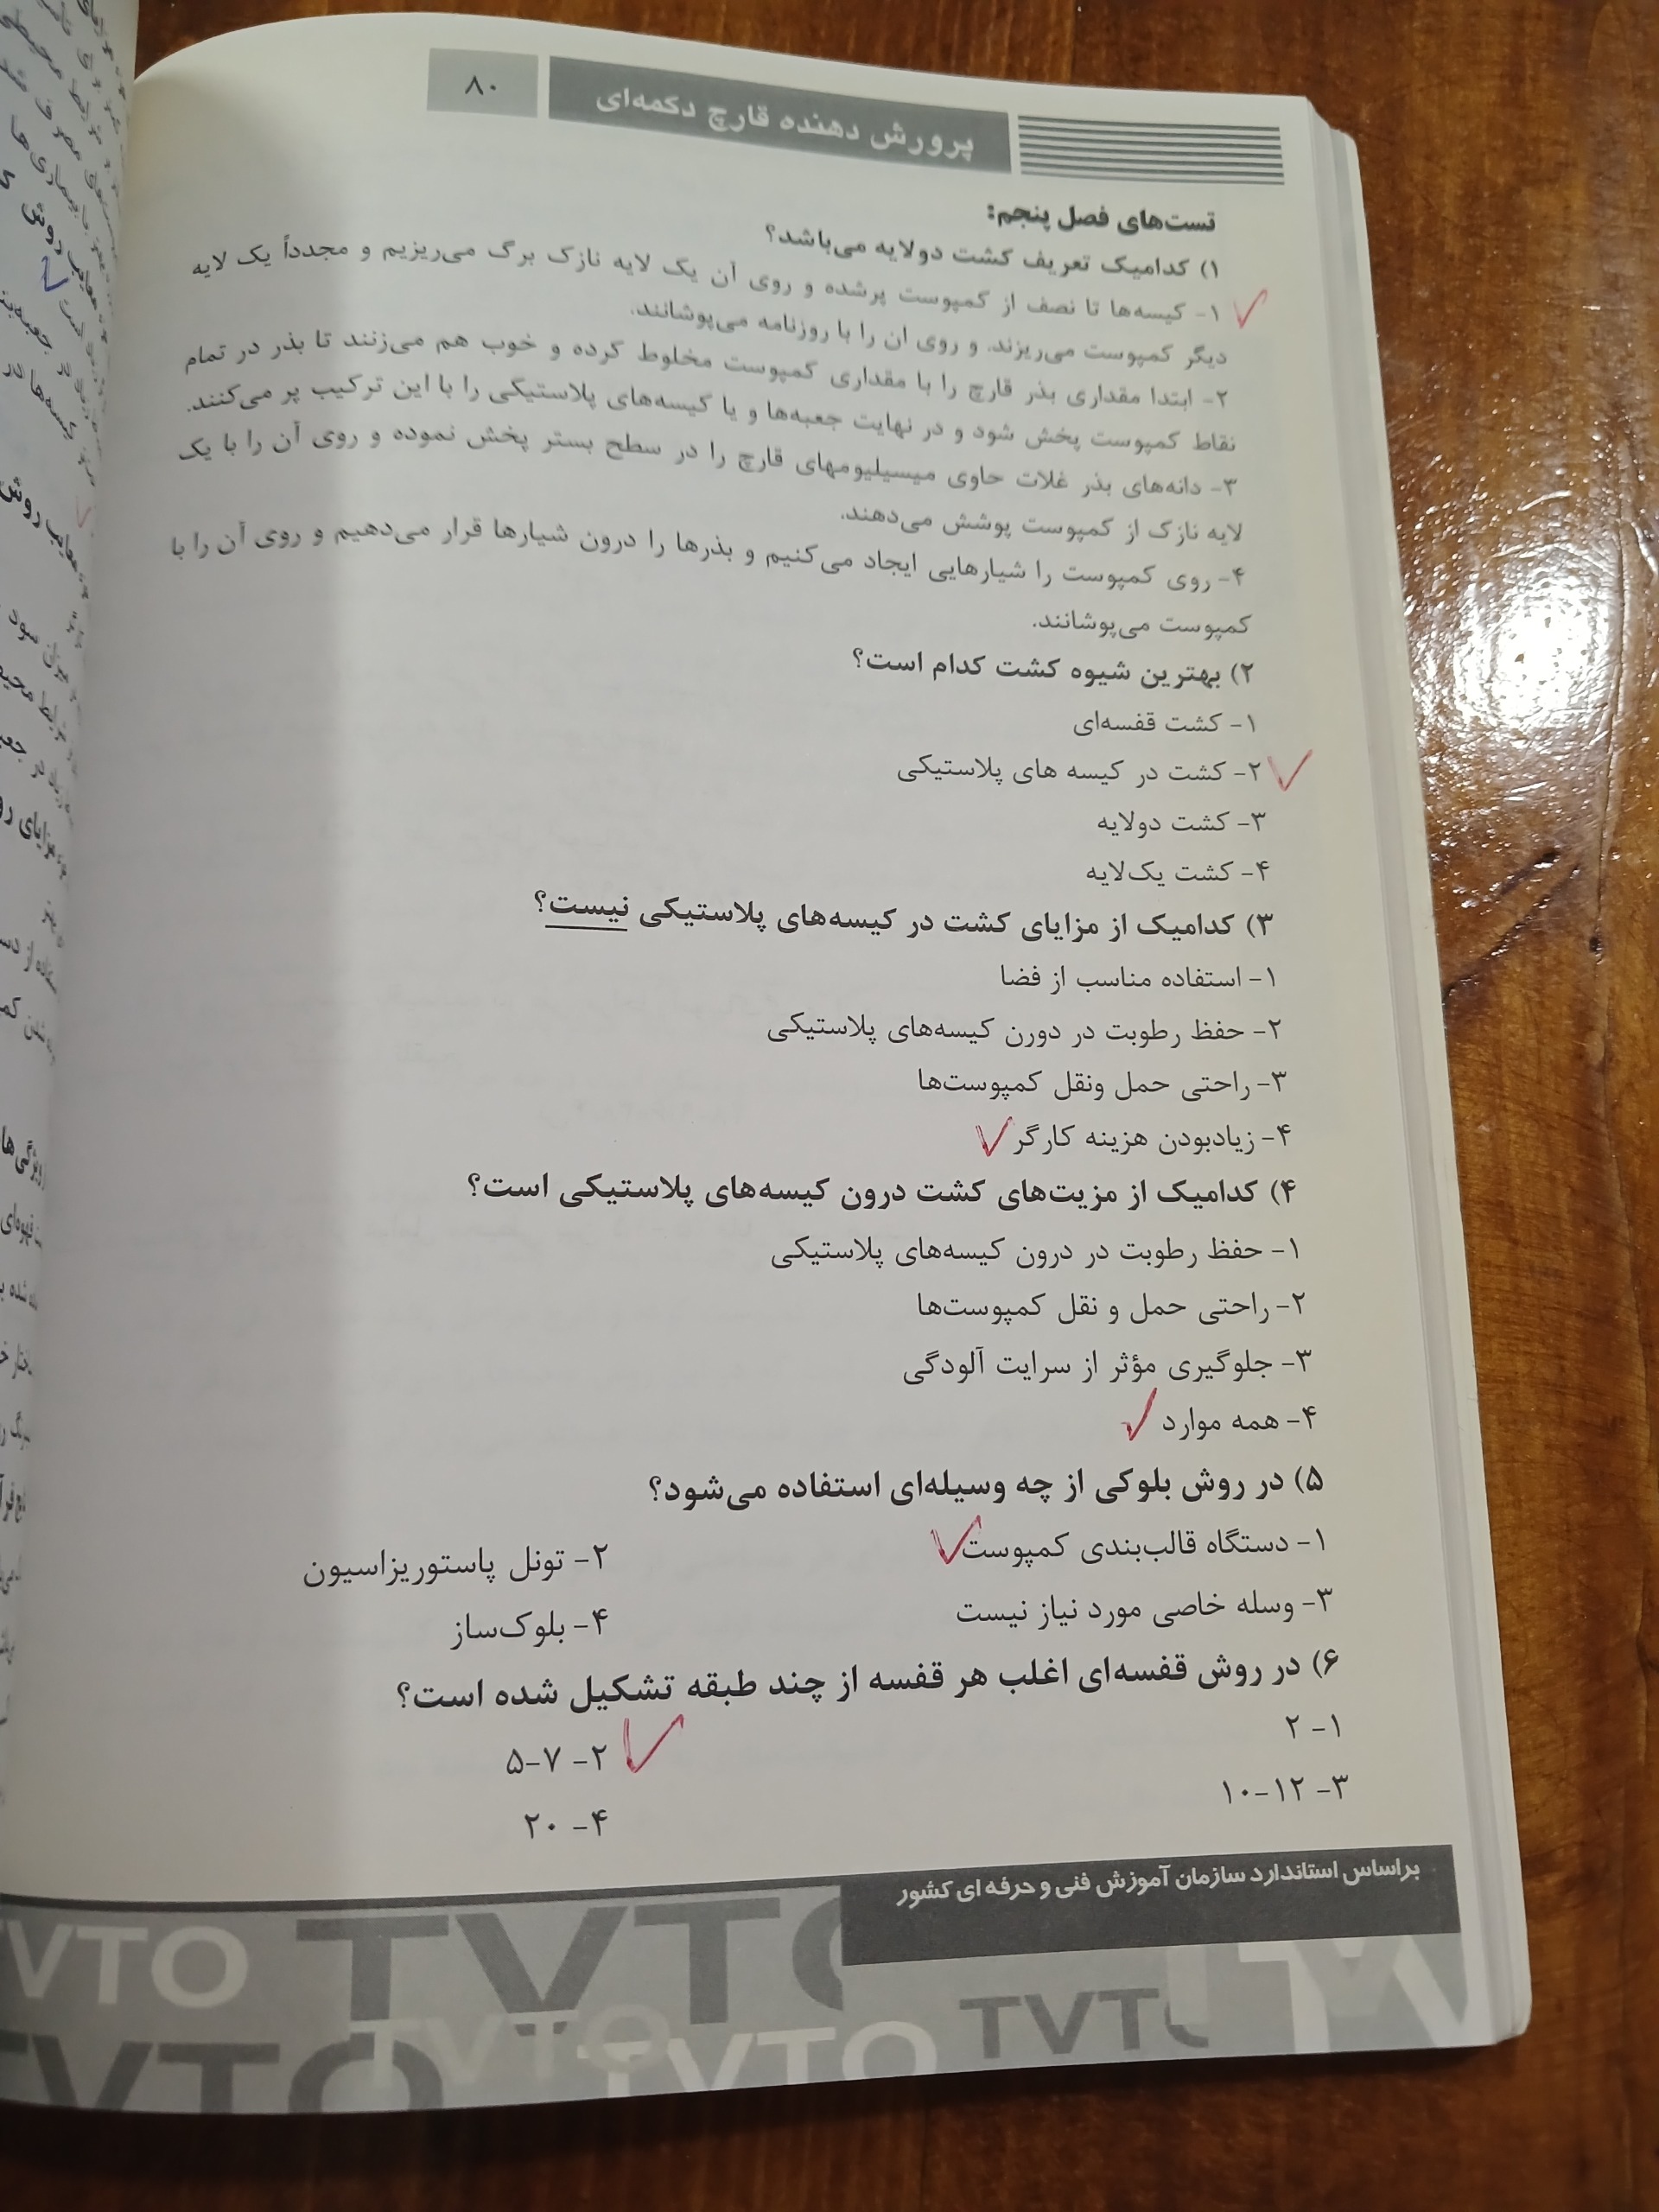 پرورش دهنده قارچ دکمه‌ای
۸۰
تست‌های فصل پنجم:
۱) کدامیک تعریف کشت دولایه می‌باشد؟
۱- کیسه‌ها تا نصف از کمپوست پرشده و روی آن یک لایه نازک برگ می‌ریزیم و مجدداً یک لایه
دیگر کمپوست می‌ریزند. و روی ان را با روزنامه می‌پوشانند.
۲- ابتدا مقداری بذر قارچ را با مقداری کمپوست مخلوط کرده و خوب هم می‌زنند تا بذر در تمام
نقاط کمپوست پخش شود و در نهایت جعبه‌ها و یا کیسه‌های پلاستیکی را با این ترکیب پر می‌کنند.
۳- دانه‌های بذر غلات حاوی میسیلیومهای قارچ را در سطح بستر پخش نموده و روی آن را با یک
لایه نازک از کمپوست پوشش می‌دهند.
۴- روی کمپوست را شیارهایی ایجاد می‌کنیم و بذرها را درون شیارها قرار می‌دهیم و روی آن را با
کمپوست می‌پوشانند.
۲) بهترین شیوه کشت کدام است؟
۱- کشت قفسه‌ای
۲- کشت در کیسه های پلاستیکی
۳- کشت دولایه
۴- کشت یک‌لایه
۳) کدامیک از مزایای کشت در کیسه‌های پلاستیکی نیست؟
۱- استفاده مناسب از فضا
۲- حفظ رطوبت در دورن کیسه‌های پلاستیکی
۳- راحتی حمل ونقل کمپوست‌ها
۴- زیادبودن هزینه کارگر
۴) کدامیک از مزیت‌های کشت درون کیسه‌های پلاستیکی است؟
۱- حفظ رطوبت در درون کیسه‌های پلاستیکی
۲- راحتی حمل و نقل کمپوست‌ها
۳- جلوگیری مؤثر از سرایت آلودگی
۴- همه موارد
۵) در روش بلوکی از چه وسیله‌ای استفاده می‌شود؟
۱- دستگاه قالب‌بندی کمپوست
۲- تونل پاستوریزاسیون
۳- وسله خاصی مورد نیاز نیست
۴- بلوک‌ساز
۶) در روش قفسه‌ای اغلب هر قفسه از چند طبقه تشکیل شده است؟
۱- ۲
۲- ۷-۵
۳- ۱۲-۱۰
۴- ۲۰
براساس استاندارد سازمان آموزش فنی و حرفه ای کشور
TVTO
TVTO
TVTO